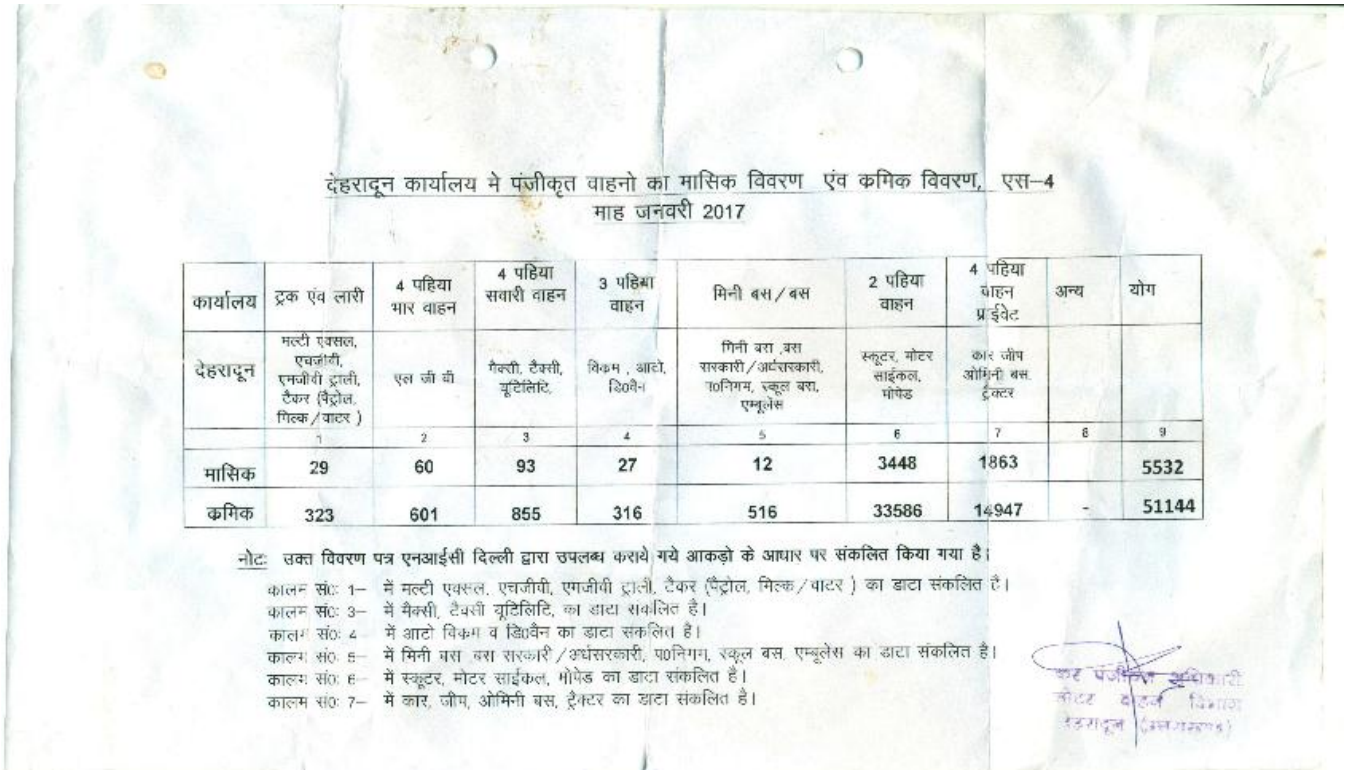 देहरादून कार्यालय मे पंजीकृत वाहनो का मासिक विवरण एंव कमिक विवरण, एस–4
माह जनवरी 2017
कार्यालय ट्रक एंव लारी 4 पहिया भार वाहन 4 पहिया सवारी वाहन 3 पहिया वाहन मिनी बस/बस 2 पहिया वाहन 4 पहिया वाहन प्राईवेट अन्य योग
देहरादून मल्टी एक्सल, एचजीवी, एमजीवी ट्राली, टैकर (पैट्रोल, मिल्क/वाटर ) एल जी वी मैक्सी, टैक्सी, यूटिलिटि, विकम , आटो, डि0वैन मिनी बस ,बस सरकारी/अर्धसरकारी, प0निगम, स्कूल बस, एम्बूलेंस स्कूटर, मोटर साईकल, मोपेड कार जीप ओमिनी बस, ट्रैक्टर
1 2 3 4 5 6 7 8 9
मासिक 29 60 93 27 12 3448 1863 5532
कमिक 323 601 855 316 516 33586 14947 - 51144
नोटः उक्त विवरण पत्र एनआईसी दिल्ली द्वारा उपलब्ध कराये गये आकड़ो के आधार पर संकलित किया गया है।
कालम सं0: 1– में मल्टी एक्सल, एचजीवी, एमजीवी ट्राली, टैकर (पैट्रोल, मिल्क/वाटर ) का डाटा संकलित है।
कालम सं0: 3– में मैक्सी, टैक्सी यूटिलिटि, का डाटा संकलित है।
कालम सं0: 4 में आटो विकम व डि0वैन का डाटा संकलित है।
कालम सं0: 5– में मिनी बस ,बस सरकारी/अर्धसरकारी, प0निगम, स्कूल बस, एम्बूलेंस का डाटा संकलित है।
कालम सं0: 6– में स्कूटर, मोटर साईकल, मोपेड का डाटा संकलित है।
कालम सं0: 7– में कार, जीप, ओमिनी बस, ट्रैक्टर का डाटा संकलित है।
कर पंजीयन अधिकारी
मोटर वाहन विभाग
देहरादून (उत्तराखण्ड)